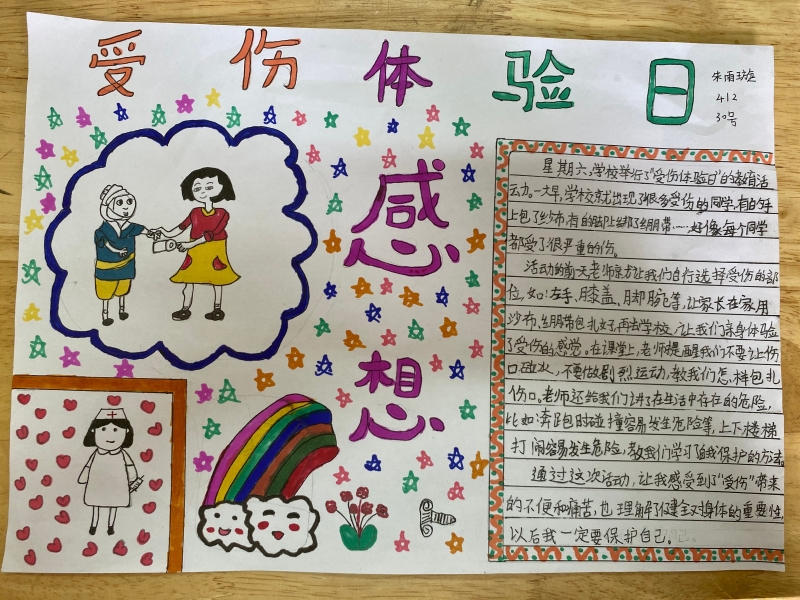 受伤体验日
朱雨璇
412
30号
感想
星期六,学校举行了“受伤体验日”的教育活
动。一大早,学校京就出现了很多受伤的同学,有的手
上包了纱布,有的脚上绑了绷带……好像每个同学
都受了很严重的伤。
活动的前天老师就让我们自行选择受伤的部
位,如:左手、膝盖、脚腕等,让家长在家用
沙布、绷带包扎好,再去学校,让我们亲身体验
了受伤的感觉。在课堂上,老师提醒我们不要让伤
口碰水,不要做剧烈运动,教我们怎样包扎
伤口。老师还给我们讲了在生活中存在的危险,
比如:奔跑时碰撞容易发生危险等,上下楼梯
打闹容易发生危险,教我们学习了自我保护的方法。
通过这次活动,让我感受到了“受伤”带来
的不便和痛苦,也理解了健全对身体的重要性,
以后我一定要保护自己。